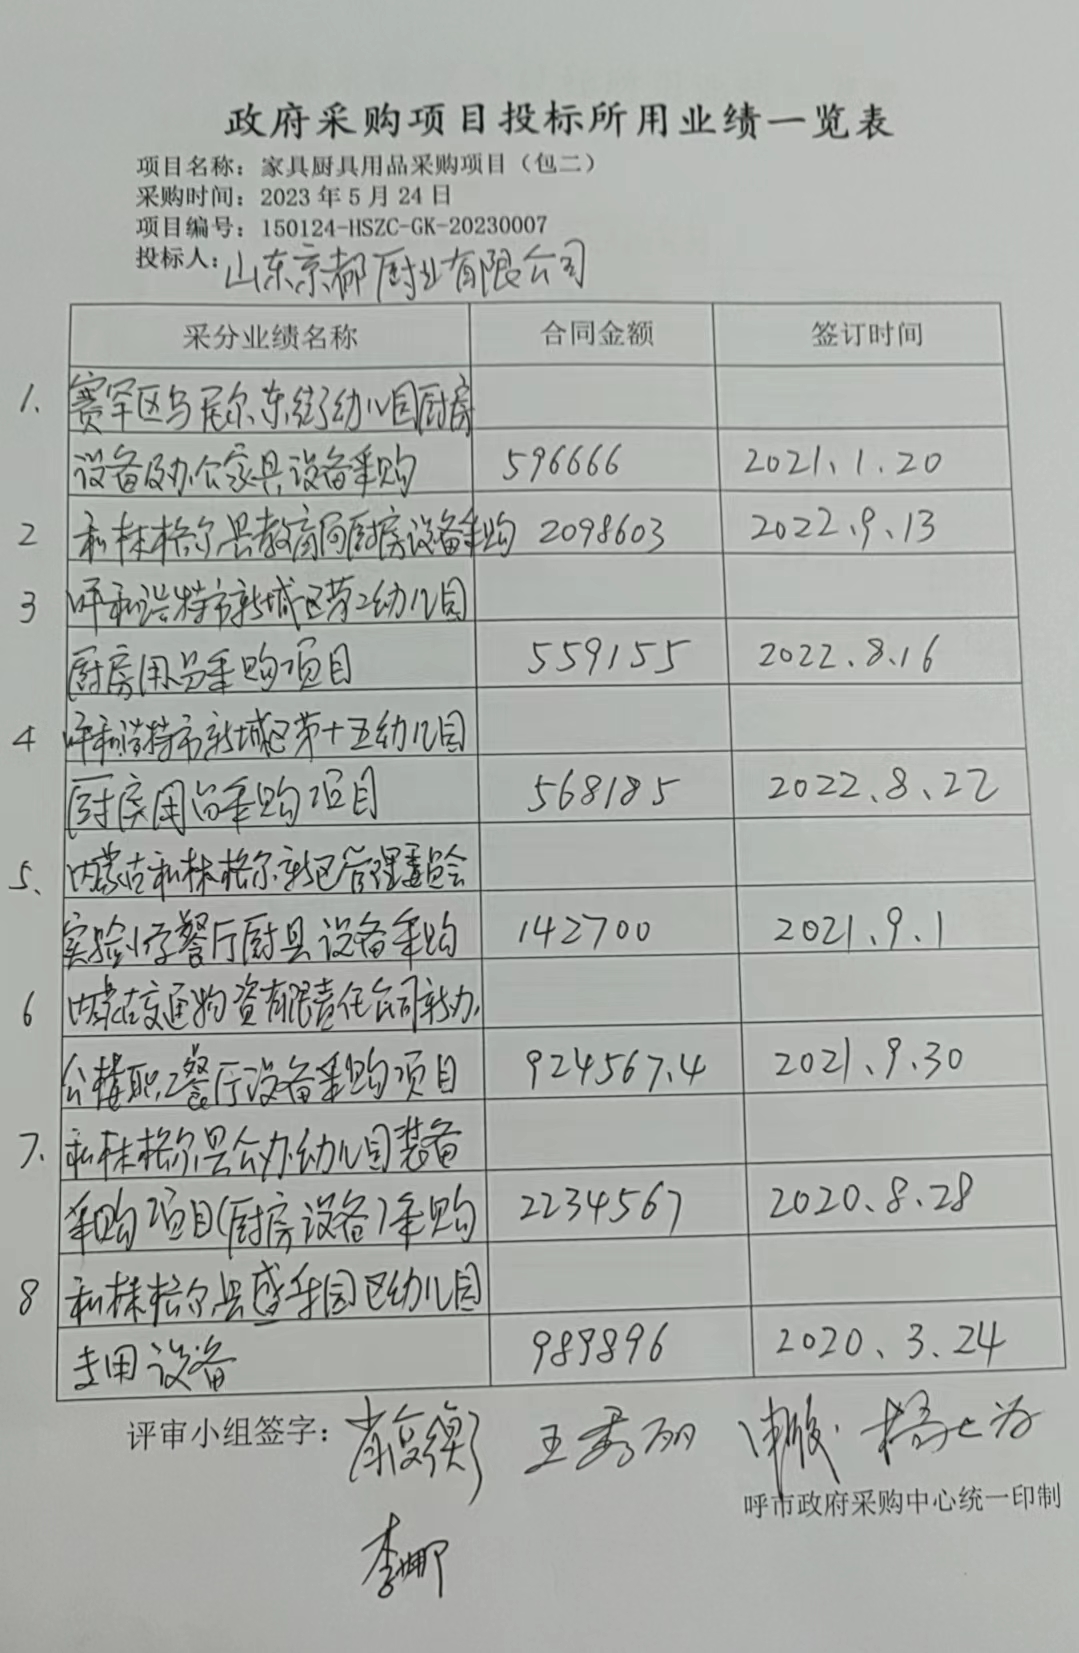 政府采购项目投标所用业绩一览表
项目名称：家具厨具用品采购项目（包二）
采购时间：2023年5月24日
项目编号：150124-HSZC-GK-20230007
投标人：山东京都厨业有限公司
采分业绩名称 合同金额 签订时间
1、赛罕区乌尼尔东街幼儿园厨房
设备及办公家具设备采购 596666 2021.1.20
2 和林格尔县教育局厨房设备采购 2098603 2022.9.13
3 呼和浩特市新城区第二幼儿园
厨房用品采购项目 559155 2022.8.16
4 呼和浩特市新城区第十五幼儿园
厨房用品采购项目 568185 2022.8.22
5、内蒙古和林格尔新区管理委员会
实验小学餐厅厨具设备采购 142700 2021.9.1
6 内蒙古交通物资有限责任公司新办
公楼职工餐厅设备采购项目 924567.4 2021.9.30
7、和林格尔县公办幼儿园装备
采购项目(厨房设备)采购 2234567 2020.8.28
8 和林格尔县盛乐园区幼儿园
专用设备 989896 2020、3.24
评审小组签字： 王秀丽
呼市政府采购中心统一印制
李娜